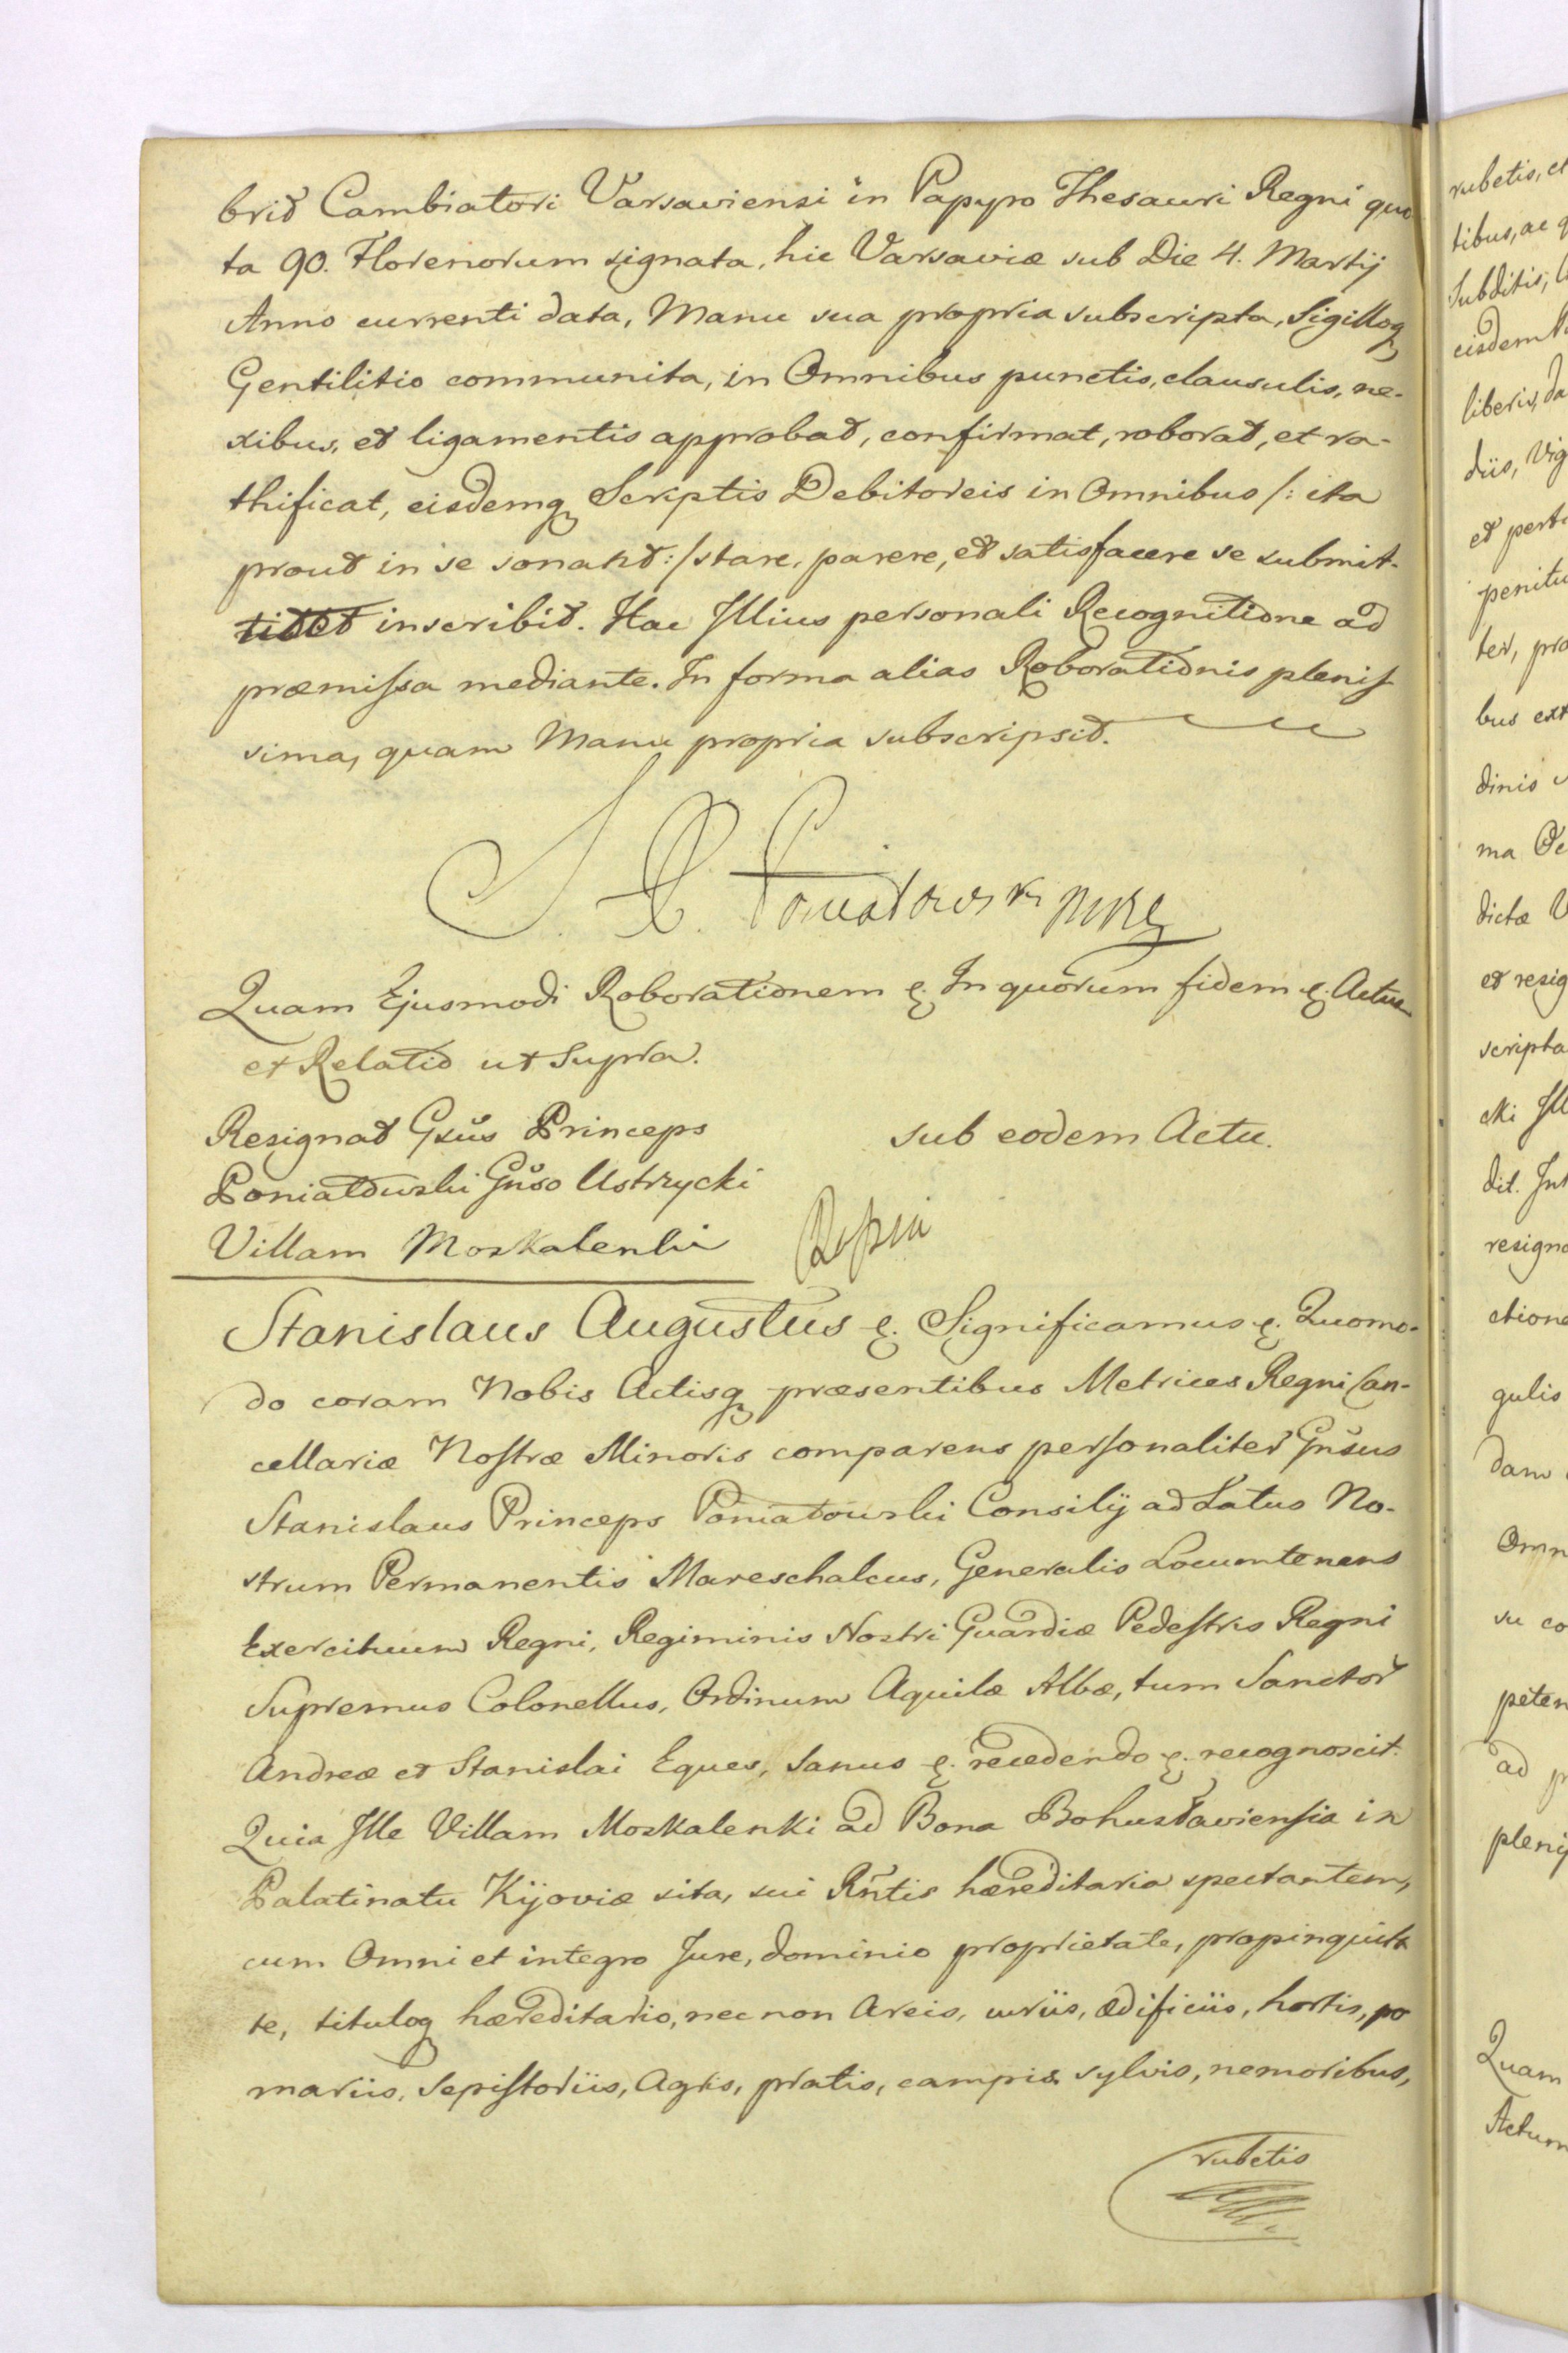 brit Cambiatori Varsaviensi in Papyro Thesauri Regni quo
ta 90. Florenorum signata, hic Varsaviæ sub Die 4. Martij
Anno currenti data, Manu sua propria subscripta, Sigilloq
Gentilitio communita, in Omnibus punctis, clausulis, ne-
xibus, et ligamentis approbat, confirmat, roborat, et ra-
thificat, eisdemq Scriptis Debitoreis in Omnibus /: ita
prout in se sonant :/ stare, parere, et satisfacere se submit-
tit et inscribit. Hac Illius personali Recognitione ad
præmissa mediante. In forma alias Roborationis plenis
sima, quam Manu propria subscripsit.
S. P. Poniatowski mp
Quam Ejusmodi Roborationem &. In quorum fidem &. Actum
et Relatio ut Supra.
Resignat Gsus Princeps
Poniatowski Gnso Ustrzycki
Villam Moskalenki
sub eodem Actu.
Stanislaus Augustus &. Significamus &. Quomo-
do coram Nobis Actisq præsentibus Metrices Regni Can-
cellariæ Nostræ Minoris comparens personaliter Gnsus
Stanislaus Princeps Poniatowski Consilij ad Latus No-
strum Permanentis Mareschalcus, Generalis Locumtenens
Exercituum Regni, Regiminis Nostri Guardiæ Pedestris Regni
Supremus Colonellus, Ordinum Aquilæ Albæ, tum Sanctor
Andreæ et Stanislai Eques, sanus &. recedendo &. recognoscit.
Quia Ille Villam Moskalenki ad Bona Bohuslaviensia in
Palatinatu Kijoviæ sita, sui Rntis hæreditaria spectantem,
cum Omni et integro Jure, dominio proprietate, propinquita
te, tituloq hæreditario, nec non Areis, curiis, ædificiis, hortis, po
mariis, sepistoriis, Agris, pratis, campis sylvis, nemoribus,
rubetis
rubetis, et
tibus, ac q
Subditis,
eisdem
liberis, da
diis, Vig
et perti
penitu
ter, pro
bus ext
dinis
ma
dictæ V
et resig
scripta
cki Ill
dit. Int
resigna
ctione
gulis
dam
Omn
su co
peten
ad p
pleni
Quam
Actum